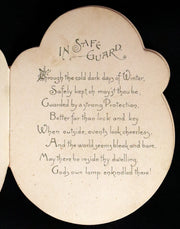 IN SAFE
GUARD.
Through the cold dark days of Winter,
Safely kept oh may'st thou be,
Guarded by a strong Protection,
Better far than lock and key
When outside, events look cheerless,
And the world seems bleak and bare,
May there be inside thy dwelling
God's own lamp enkindled there!